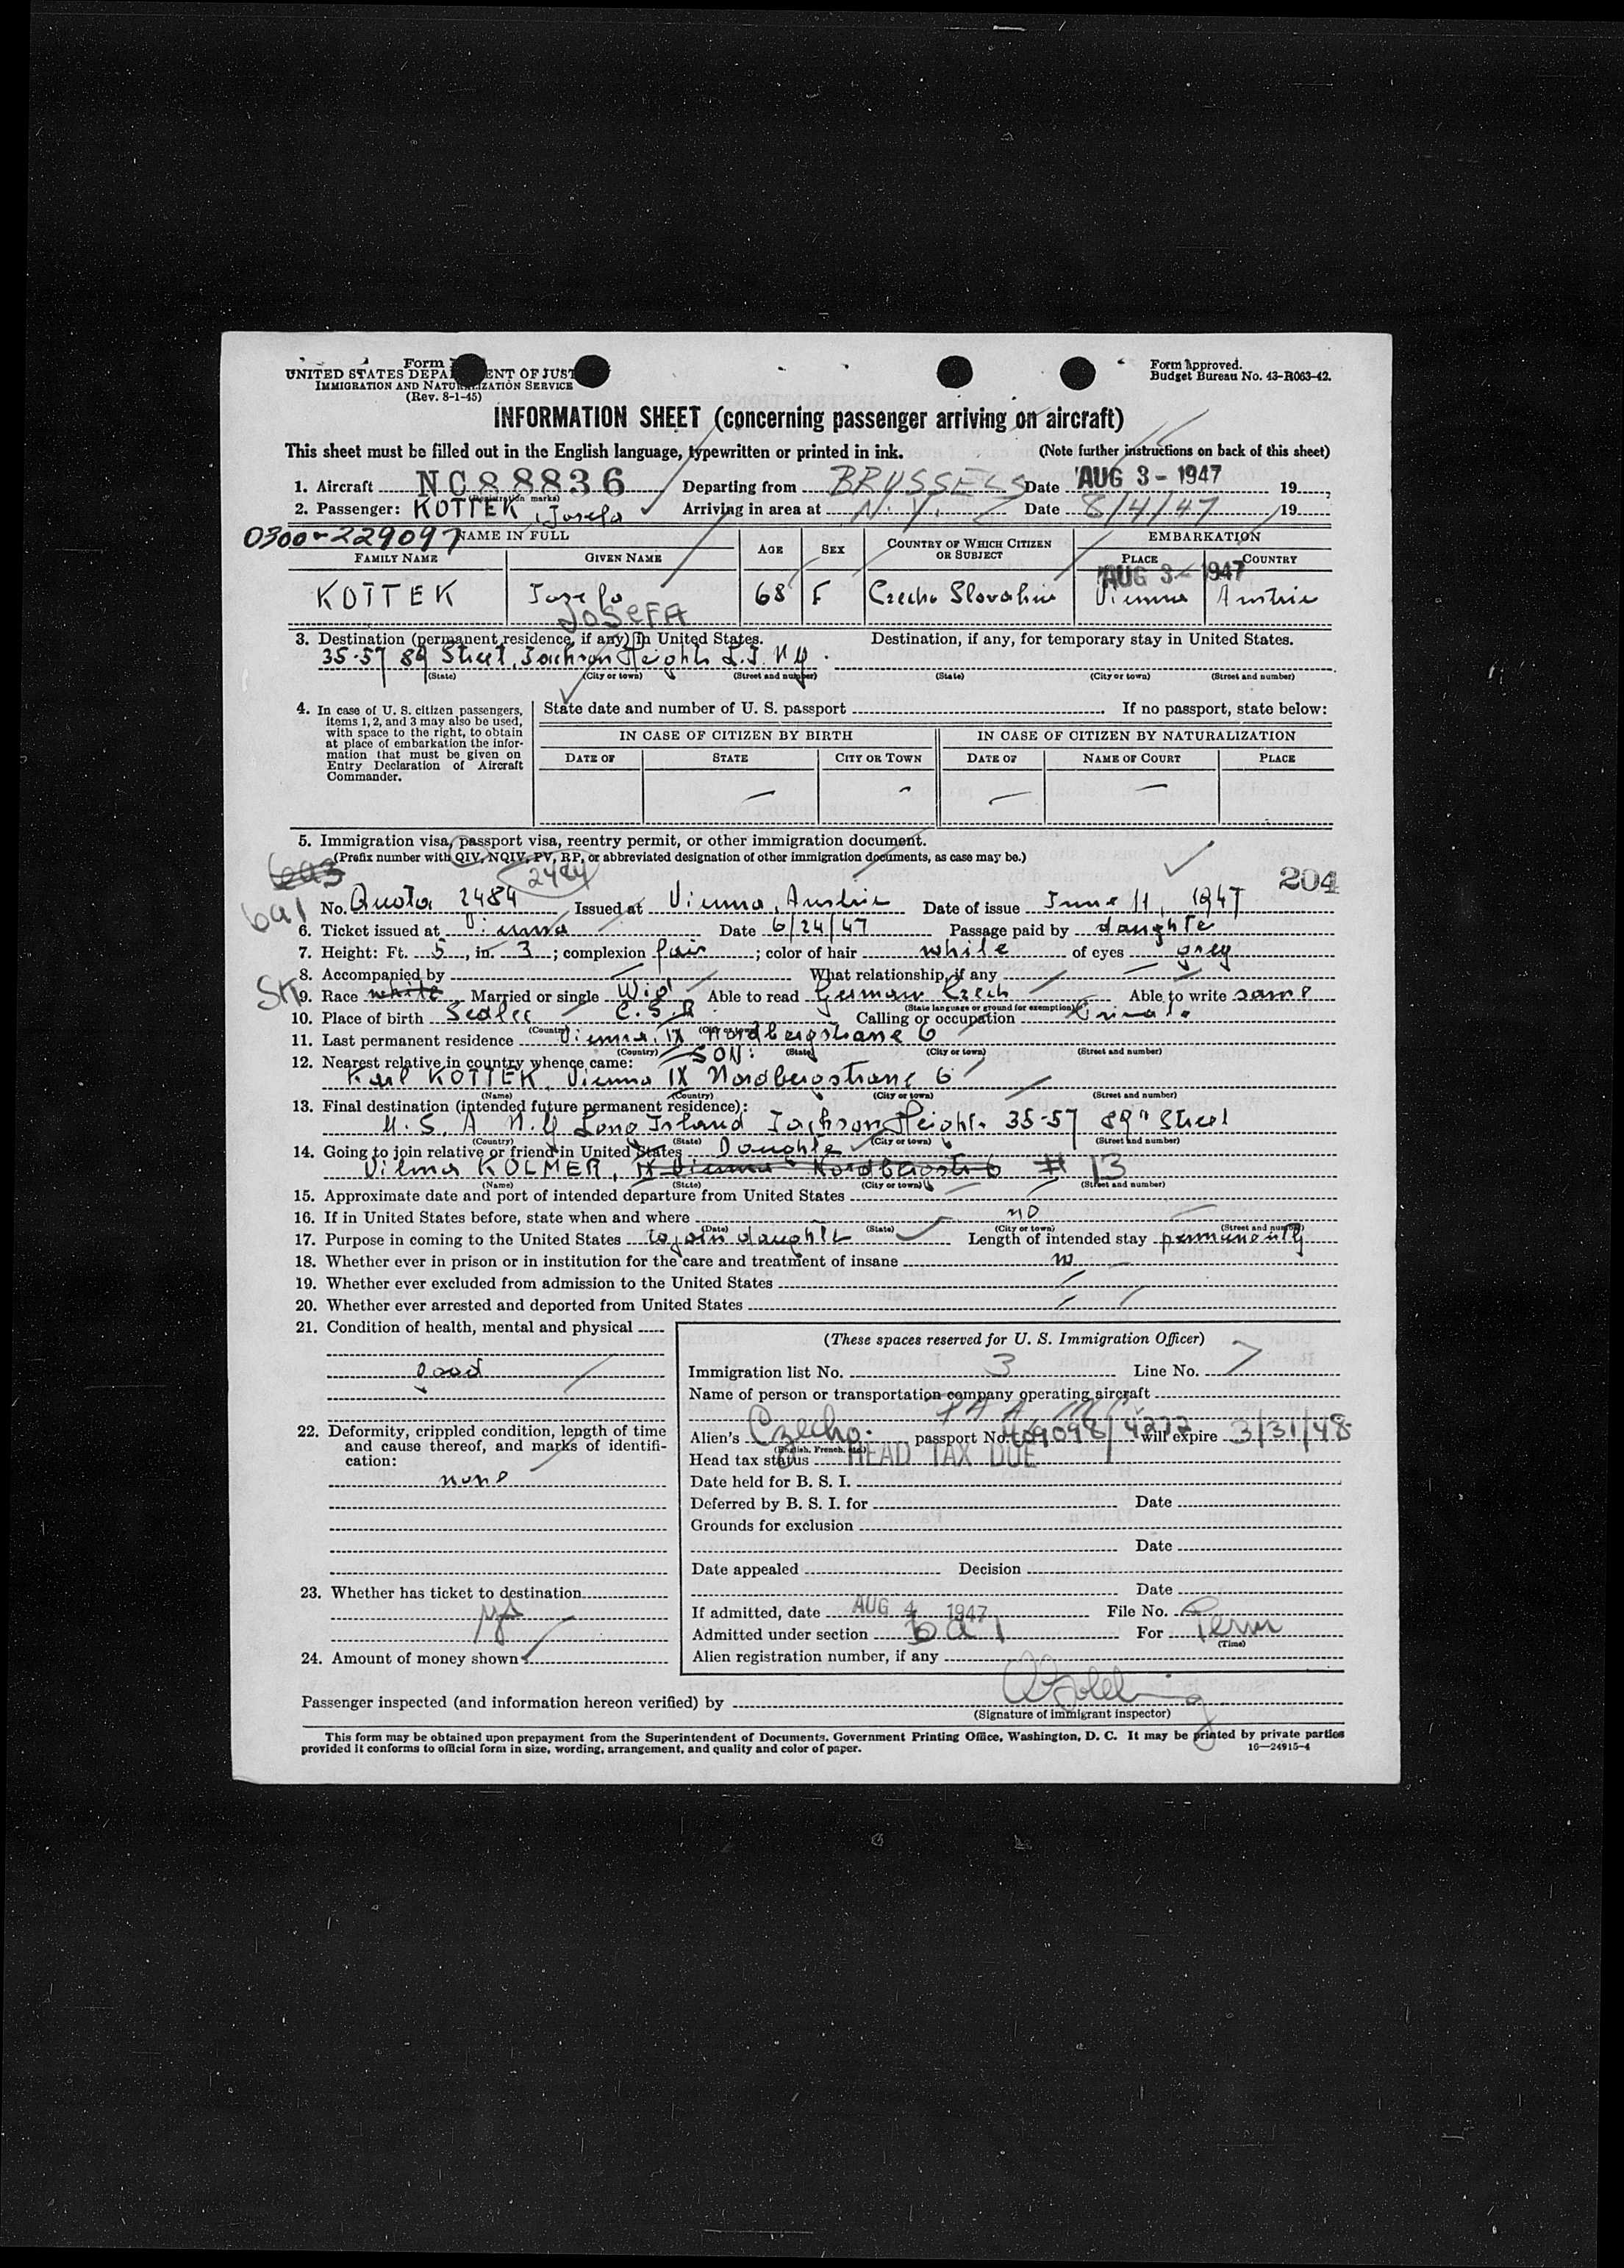 Form
UNITED STATES DEPA ENT OF JUST
IMMIGRATION AND NATURALIZATION SERVICE
(Rev. 8-1-45)
Form Approved.
Budget Bureau No. 43-R063-42.
INFORMATION SHEET (concerning passenger arriving on aircraft)
This sheet must be filled out in the English language, typewritten or printed in ink. (Note further instructions on back of this sheet)
1. Aircraft NC88836 Departing from BRUSSELS Date AUG 3 - 1947 19
(Registration marks)
2. Passenger: KOTTEK, Josefa Arriving in area at N.Y. Date 8/4/47 19
0300-229097 NAME IN FULL AGE SEX COUNTRY OF WHICH CITIZEN OR SUBJECT EMBARKATION
FAMILY NAME GIVEN NAME PLACE COUNTRY
AUG 3 - 1947
KOTTEK Josefa 68 F Czecho Slovakia Vienna Austria
JOSEFA
3. Destination (permanent residence, if any) in United States. Destination, if any, for temporary stay in United States.
35-57 89 Street, Jackson Heights L.I. N.Y.
(State) (City or town) (Street and number) (State) (City or town) (Street and number)
4. In case of U. S. citizen passengers, items 1, 2, and 3 may also be used, with space to the right, to obtain at place of embarkation the information that must be given on Entry Declaration of Aircraft Commander.
State date and number of U. S. passport If no passport, state below:
IN CASE OF CITIZEN BY BIRTH IN CASE OF CITIZEN BY NATURALIZATION
DATE OF STATE CITY OR TOWN DATE OF NAME OF COURT PLACE
5. Immigration visa, passport visa, reentry permit, or other immigration document.
(Prefix number with QIV, NQIV, PV, RP, or abbreviated designation of other immigration documents, as case may be.)
6a3
2484
204
6a1
No. Quota 2484 Issued at Vienna, Austria Date of issue June 11, 1947
6. Ticket issued at Vienna Date 6/24/47 Passage paid by daughter
7. Height: Ft. 5, in. 3; complexion fair; color of hair white of eyes grey
8. Accompanied by What relationship, if any
SK
9. Race white Married or single Wid Able to read German Czech Able to write same
(State language or ground for exemption)
10. Place of birth Sedlec C.S.R. Calling or occupation Private
(Country) (City or town)
11. Last permanent residence Vienna, IX Nordbergstrasse 6
(Country) (State) (City or town) (Street and number)
12. Nearest relative in country whence came: SON:
Karl KOTTEK, Vienna IX Nordbergstrasse 6
(Name) (Country) (City or town) (Street and number)
13. Final destination (intended future permanent residence):
U. S. A N.Y Long Island Jackson Heights 35-57 89th Street
(Country) (State) (City or town) (Street and number)
14. Going to join relative or friend in United States Daughter
Vilma KOLMER, IX Vienna Nordbergstr 6 # 13
(Name) (State) (City or town) (Street and number)
15. Approximate date and port of intended departure from United States
16. If in United States before, state when and where no
(Date) (State) (City or town) (Street and number)
17. Purpose in coming to the United States to join daughter Length of intended stay permanently
18. Whether ever in prison or in institution for the care and treatment of insane no
19. Whether ever excluded from admission to the United States
20. Whether ever arrested and deported from United States
21. Condition of health, mental and physical
good
22. Deformity, crippled condition, length of time and cause thereof, and marks of identification:
none
23. Whether has ticket to destination
yes
24. Amount of money shown
(These spaces reserved for U. S. Immigration Officer)
Immigration list No. 3 Line No. 7
Name of person or transportation company operating aircraft
P A A
Alien's Czecho. passport No. 409098/4272 will expire 3/31/48
(English, French, etc.)
Head tax status HEAD TAX DUE
Date held for B. S. I.
Deferred by B. S. I. for Date
Grounds for exclusion
Date
Date appealed Decision
Date
If admitted, date AUG 4 1947 File No.
Admitted under section 6a1 For Perm
(Time)
Alien registration number, if any
Passenger inspected (and information hereon verified) by
(Signature of immigrant inspector)
This form may be obtained upon prepayment from the Superintendent of Documents, Government Printing Office, Washington, D. C. It may be printed by private parties
provided it conforms to official form in size, wording, arrangement, and quality and color of paper. 16—24915-4